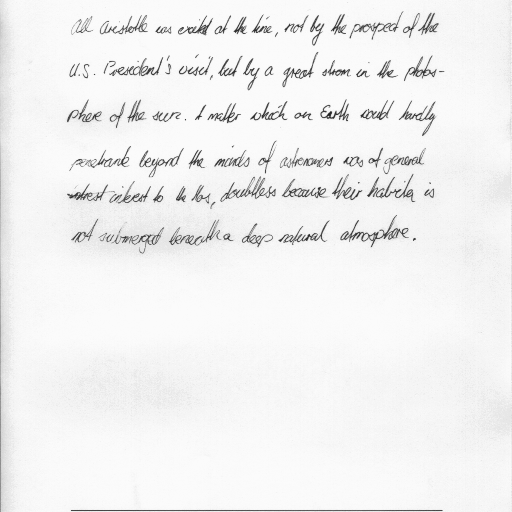 All Aristotle was excited at the time, not by the prospect of the
U.S. President's visit, but by a great storm in the photos-
phere of the sun. A matter which on Earth would hardly
penetrate beyond the minds of astronomers was of general
interest to the Hos, doubtless because their habitat is
not submerged beneath a deep natural atmosphere.